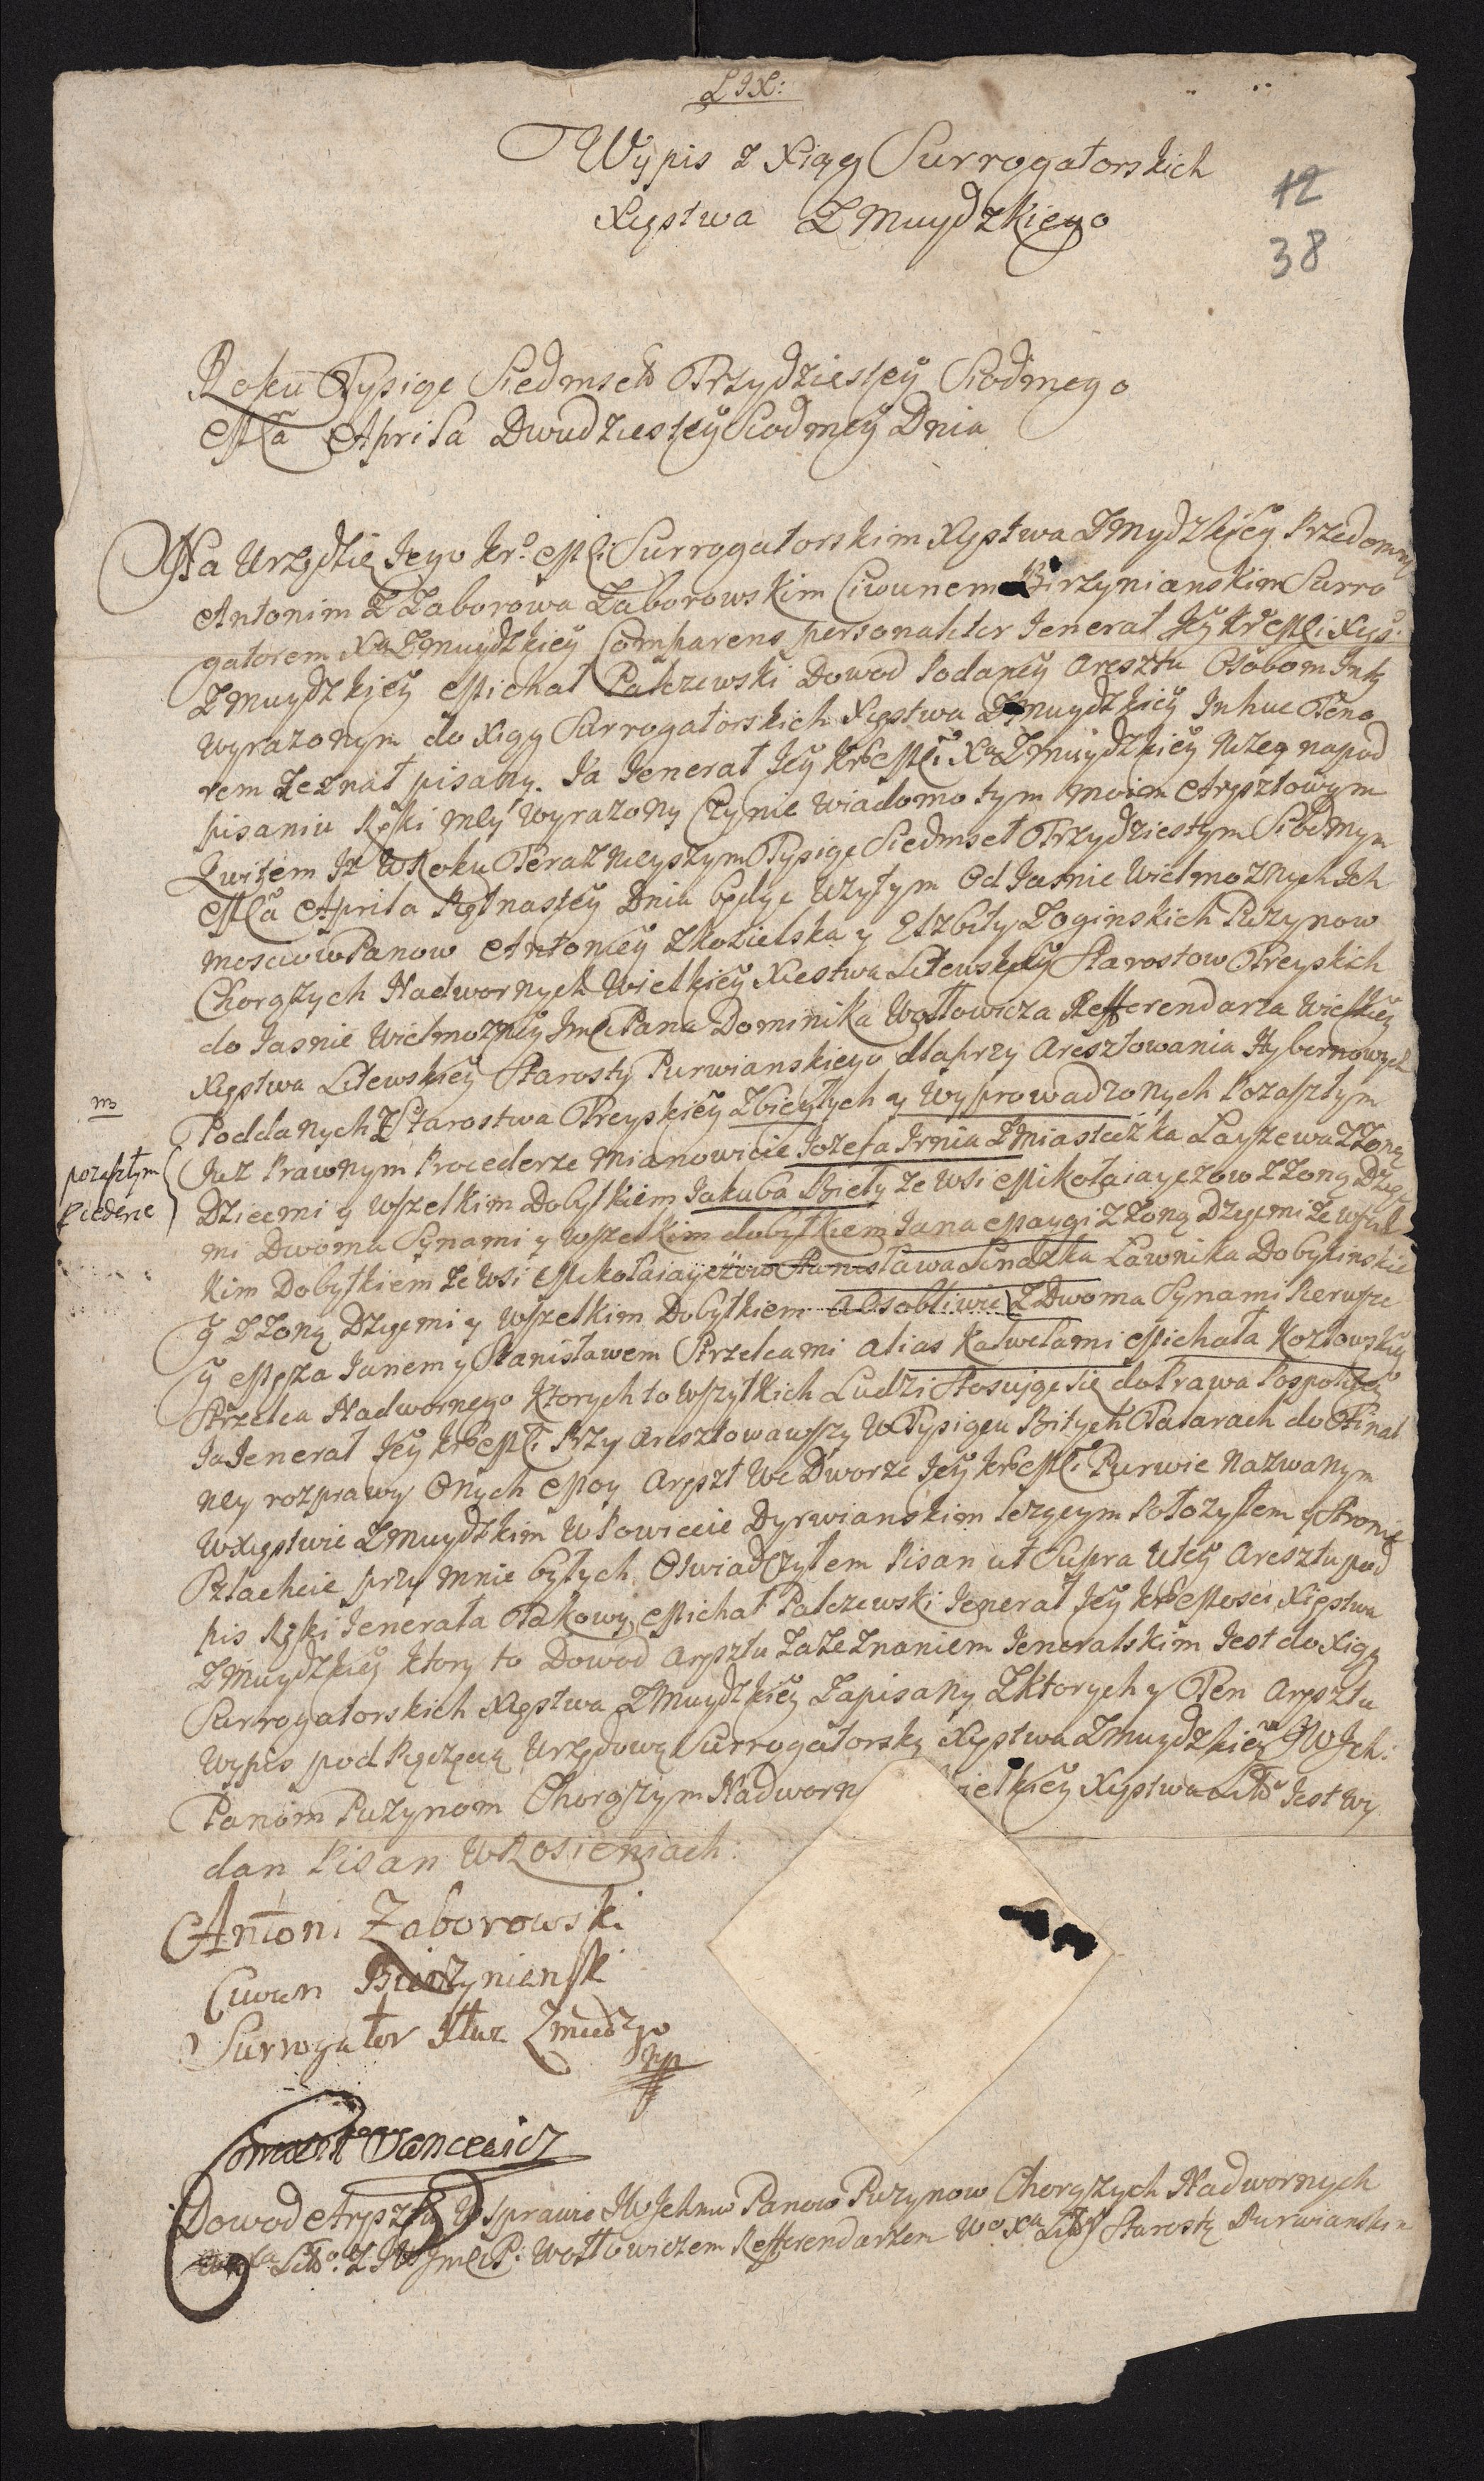 LIX:
Wypis z Xiąg Surrogatorskich
Xięstwa Zmuydzkiego
12
38
Roku Tysiąc Siedmset Trzydziestey Siodmego
Mca Aprila Dwudziestey Siodmey Dnia
Na Urzędzie Jego kro. Mci Surrogatorskim Xięstwa Zmydzkiey Przedemną
Antonim Z Zaborowa Zaborowskim Ciwunem Birzynianskim Surro
gatorem Xa Zmuydzkiey Comparens personaliter Jenerał Jey kr Mci Xięs:
Zmuydzkiey Michał Palczewski Dowod Podaney Aresztu Osobom Intʒ
wyrazonym do Xiąg Surrogatorskich Xięstwa Zmuydzkiey In huc Teno
rem Zeznał pisany. Ja Jenerał Jey kro Mci Xa Zmuydzkiey Niżey na pod
pisaniu Ręki mey wyrazony Czynie wiadomo tym moim Aresztowym
Kwitem Iż W Roku Teraznieyszym Tysiąc Siedmset Trzydziestym Siodmym
Mca Aprila Piętnastey Dnia będąc Użytym Od Jasnie Wielmoznych Ich
Mosciow Panow Antoniey z Kozielska y Elzbity Zoginskich Puzynow
Chorążych Nadwornych Wielkiey Xiestwa Litewskiey Starostow Treyskich
do Jasnie Wielmozney Jmci Pana Dominika Wołłowicza Refferendarza Wielkiey
Xięstwa Litewskiey Starosty Purwianskiego dla przy Aresztowania Hybernowych
Poddanych Z Starostwa Treyskiey Zbiegłych y Wyprowadzonych Pozaszłym
Już Prawnym Procederze mianowicie Jozefa Irnia Z Miasteczka Layzewa Z Zoną
m
pozaszłym
Dziecmi y wszelkim Dobytkiem Jakuba Bieły ze wsi Mikołaiayczow z Zoną Dzię
mi Dwoma Synami y wszelkim dobytkiem Jana Maygi z Zoną Dziecmi ze wszel
kim Dobytkiem ze wsi Mikołaiayczow Stanisława Ławnika Dobykinskie
y z Zoną Dziecmi y wszelkim Dobytkiem a Osobliwie Z Dwoma Synami Pierwsze
y Męża Janem y Stanisławem Strzelcami alias Kalwelami Michała Kozłowskiey
Strzelca Nadwornego Ktorych to wszytkich Ludzi Stosuiąc sie do Prawa Pospolitey
Ja Jenerał Jey kro Mci Przy aresztowawszy W Tysiącu Bitych Talarach do Final
ney rozprawy Onych Moy Areszt We Dworze Jey kro Mci Purwie Nazwanym
W Xięstwie Zmuydzkim W Powiecie Dyrwianskim leżącym Położyłem y Stronie
Szlachcie przy mnie byłych Oswiadczyłem Pisan ut Supra U tey Aresztu pod
pis Ręki Jenerała Takowy Michał Palczewski Jenerał Jey kro Mosci Xięstwa
Zmuydzkiey Ktory to Dowod Aresztu Za Zeznaniem Jeneralskim Jest do Xiąg
Surrogatorskich Xięstwa Zmuydzkiey Zapisany Z ktorych y Ten Aresztu
Wypis pod Pięczęcią Urzędową Surrogatorską Xięstwa Zmuydzkiey JW Ich:
Panom Puzynom Chorążym Nadworn ielkiey Xięstwa Litto Jest Wy
dan Pisan W Rosieniach:
Antoni Zaborowski
Ciwun Birżynianski
Surrogator Xtwa Zmudzgo
mp
Wancewicz
Dowod Aresztu W sprawie JW Ichmo Panow Puzynow Chorążych Nadwornych
W Xa Litto. Z JW Jmci P. Wołłowiczem Refferendarzem Wo Xa Litto Starostą Purwianskim